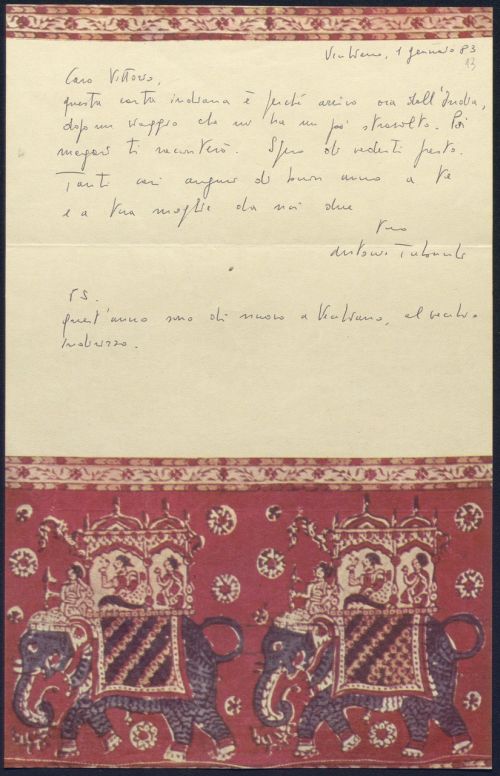 Vecchiano, 1 gennaio 83
13
Caro Vittorio,
questa carta indiana è perché arrivo ora dall'India,
dopo un viaggio che mi ha un po' stravolto. Poi
magari ti racconterò. Spero di vederti presto.
Tanti cari auguri di buon anno a te
e a tua moglie da noi due
tuo
Antonio Tabucchi
P.S.
Quest'anno sono di nuovo a Vecchiano, al vecchio
indirizzo.